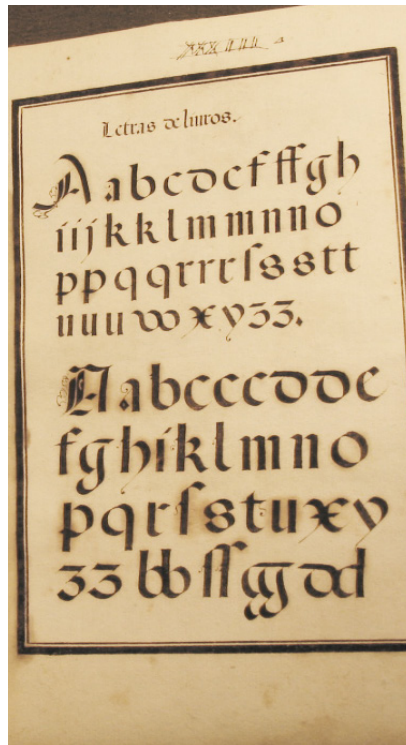 Letras de liuros.
A a b c d e f ff g h
i i j k k l m m n n o
p p q q r r r ſ s s t t
u u u w x y z z.
A a b c c c d d e
f g h i k l m n o
p q r ſ s t u x y
z z bb ſſ gg dd